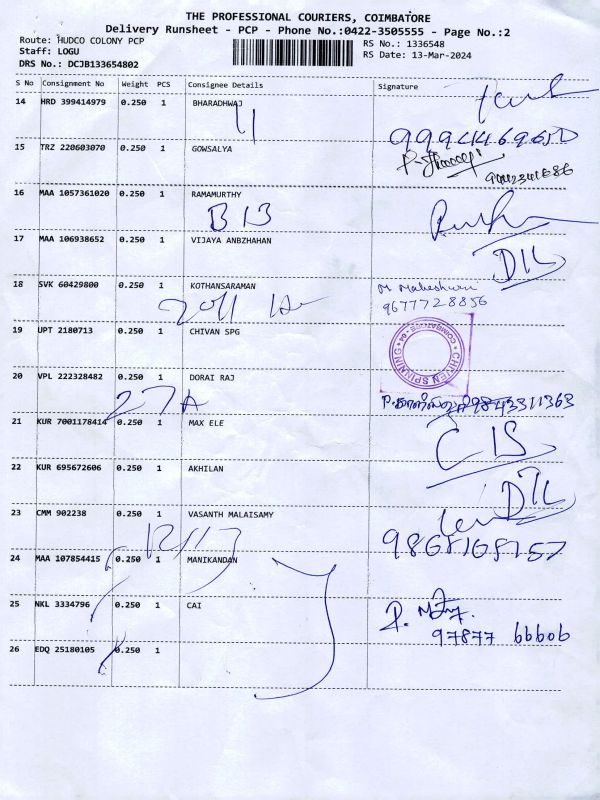 THE PROFESSIONAL COURIERS, COIMBATORE
Delivery Runsheet - PCP - Phone No.:0422-3505555 - Page No.:2
Route: HUDCO COLONY PCP
RS No.: 1336548
Staff: LOGU
RS Date: 13-Mar-2024
DRS No.: DCJB133654802
S No Consignment No Weight PCS Consignee Details Signature
14 HRD 399414979 0.250 1 BHARADHWAJ
15 TRZ 220603070 0.250 1 GOWSALYA
16 MAA 1057361020 0.250 1 RAMAMURTHY
B 13
17 MAA 106938652 0.250 1 VIJAYA ANBZHAHAN
DTL
18 SVK 60429800 0.250 1 KOTHANSARAMAN M Maheshwari
9677728856
19 UPT 2180713 0.250 1 CHIVAN SPG
20 VPL 222328482 0.250 1 DORAI RAJ
27A
9843311363
21 KUR 7001178414 0.250 1 MAX ELE
22 KUR 695672606 0.250 1 AKHILAN
DTL
23 CMM 902238 0.250 1 VASANTH MALAISAMY
24 MAA 107854415 0.250 1 MANIKANDAN
25 NKL 3334796 0.250 1 CAI
97877 66606
26 EDQ 25180105 0.250 1